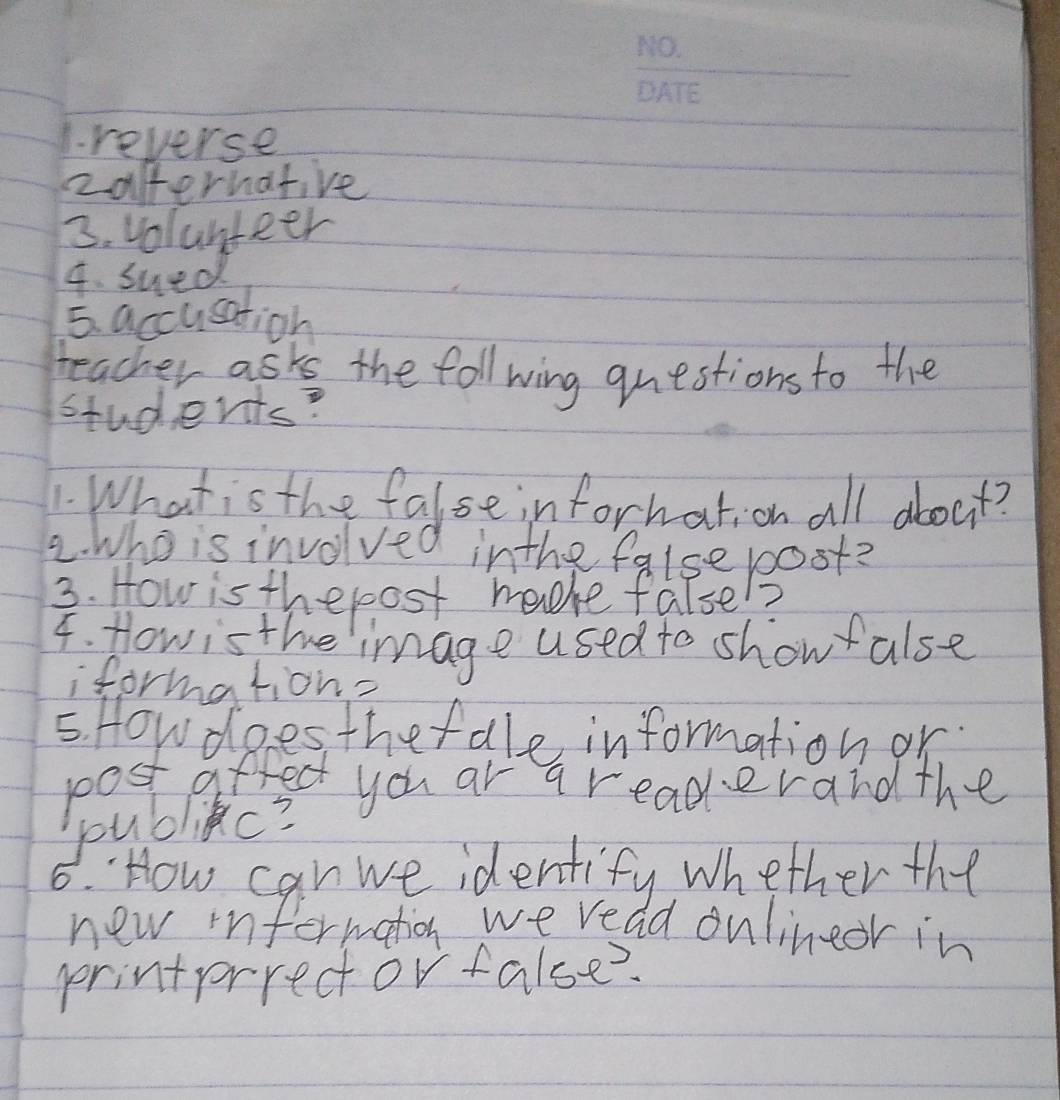 NO.
DATE
1. reverse
2 alternative
3. volunteer
4. sued
5. accusation
teacher asks the follwing questions to the
students?
1. What is the false information all about?
2. Who is involved in the false post?
3. How is the post made false?
4. How is the image used to show false
iformation?
5. How does the fale information or
post affect you ar a reader and the
public?
6. How can we identify whether the
new information we read online or in
print prrect or false?.